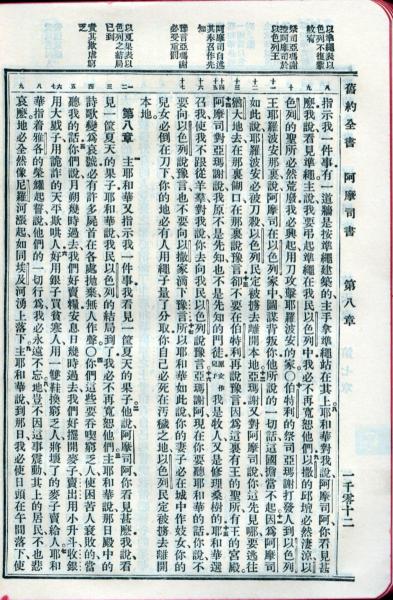 舊約全書 阿摩司書 第八章 一千零十二
以準繩表以
色列不復蒙
赦宥
祭司亞瑪謝
控阿摩司於
以色列王
阿摩司自述
其奉召作先
知
預言亞瑪謝
必受重罰
以夏果表以
色列之結局
已到
責其欺虐窮
乏
指示我一件事有一道牆是按準繩建築的主手拿準繩站在牆上耶和華對我說阿摩司阿你看見甚
麼我說看見準繩主說我要弔起準繩在我民以色列中我必不再寬恕他們以撒的邱壇必然淒涼以
色列的聖所必然荒廢我必興起用刀攻擊耶羅波安的家○伯特利的祭司亞瑪謝打發人到以色列
王耶羅波安那裏說阿摩司在以色列家中圖謀背叛你他所說的一切話這國擔當不起因為阿摩司
如此說耶羅波安必被刀殺以色列民定被擄去離開本地亞瑪謝又對阿摩司說你這先見哪要逃往
猶大地去在那裏餬口在那裏說豫言卻不要在伯特利再說豫言因為這裏有王的聖所有王的宮殿
阿摩司對亞瑪謝說我原不是先知也不是先知的門徒原文作兒子我是牧人又是修理桑樹的耶和華選
召我使我不跟從羊羣對我說你去向我民以色列說豫言亞瑪謝阿現在你要聽耶和華的話你說不
要向以色列說豫言也不要向以撒家滴下豫言所以耶和華如此說你的妻子必在城中作妓女你的
兒女必倒在刀下你的地必有人用繩子量了分取你自己必死在污穢之地以色列民定被擄去離開
本地
第八章 主耶和華又指示我一件事我看見一筐夏天的果子他說阿摩司阿你看見甚麼我說看
見一筐夏天的果子耶和華說我民以色列的結局到了我必不再寬恕他們主耶和華說那日殿中的
詩歌變為哀號必有許多屍首在各處拋棄無人作聲○你們這些要吞喫窮乏人使困苦人衰敗的當
聽我的話你們說月朔幾時過去我們好賣糧安息日幾時過去我們好擺開麥子賣出用小升斗收銀
用大戥子用詭詐的天平欺哄人好用銀子買貧寒人用一雙鞋換窮乏人將壞了的麥子賣給人耶和
華指着雅各的榮耀起誓說他們的一切行為我必永遠不忘地豈不因這事震動其上的居民不也悲
哀麼地必全然像尼羅河漲起如同埃及河湧上落下主耶和華說到那日我必使日頭在午間落下使